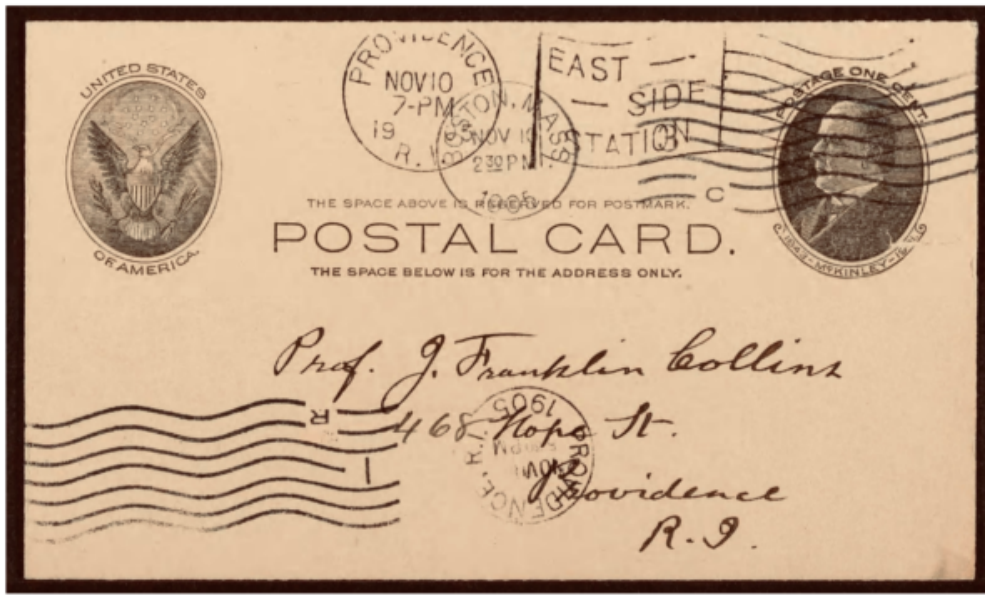 UNITED STATES
OF AMERICA.
PROVIDENCE
NOV 10
7-PM
19
R.I.
BOSTON, MASS
NOV 10
2 30 PM
1905
EAST
SIDE
STATION
C
POSTAGE ONE CENT.
1843-McKINLEY-
THE SPACE ABOVE IS RESERVED FOR POSTMARK.
POSTAL CARD.
THE SPACE BELOW IS FOR THE ADDRESS ONLY.
Prof. J. Franklin Collins
468 Hope St.
Providence
R.I.
R
I
PROVIDENCE, R.I.
NOV
1905